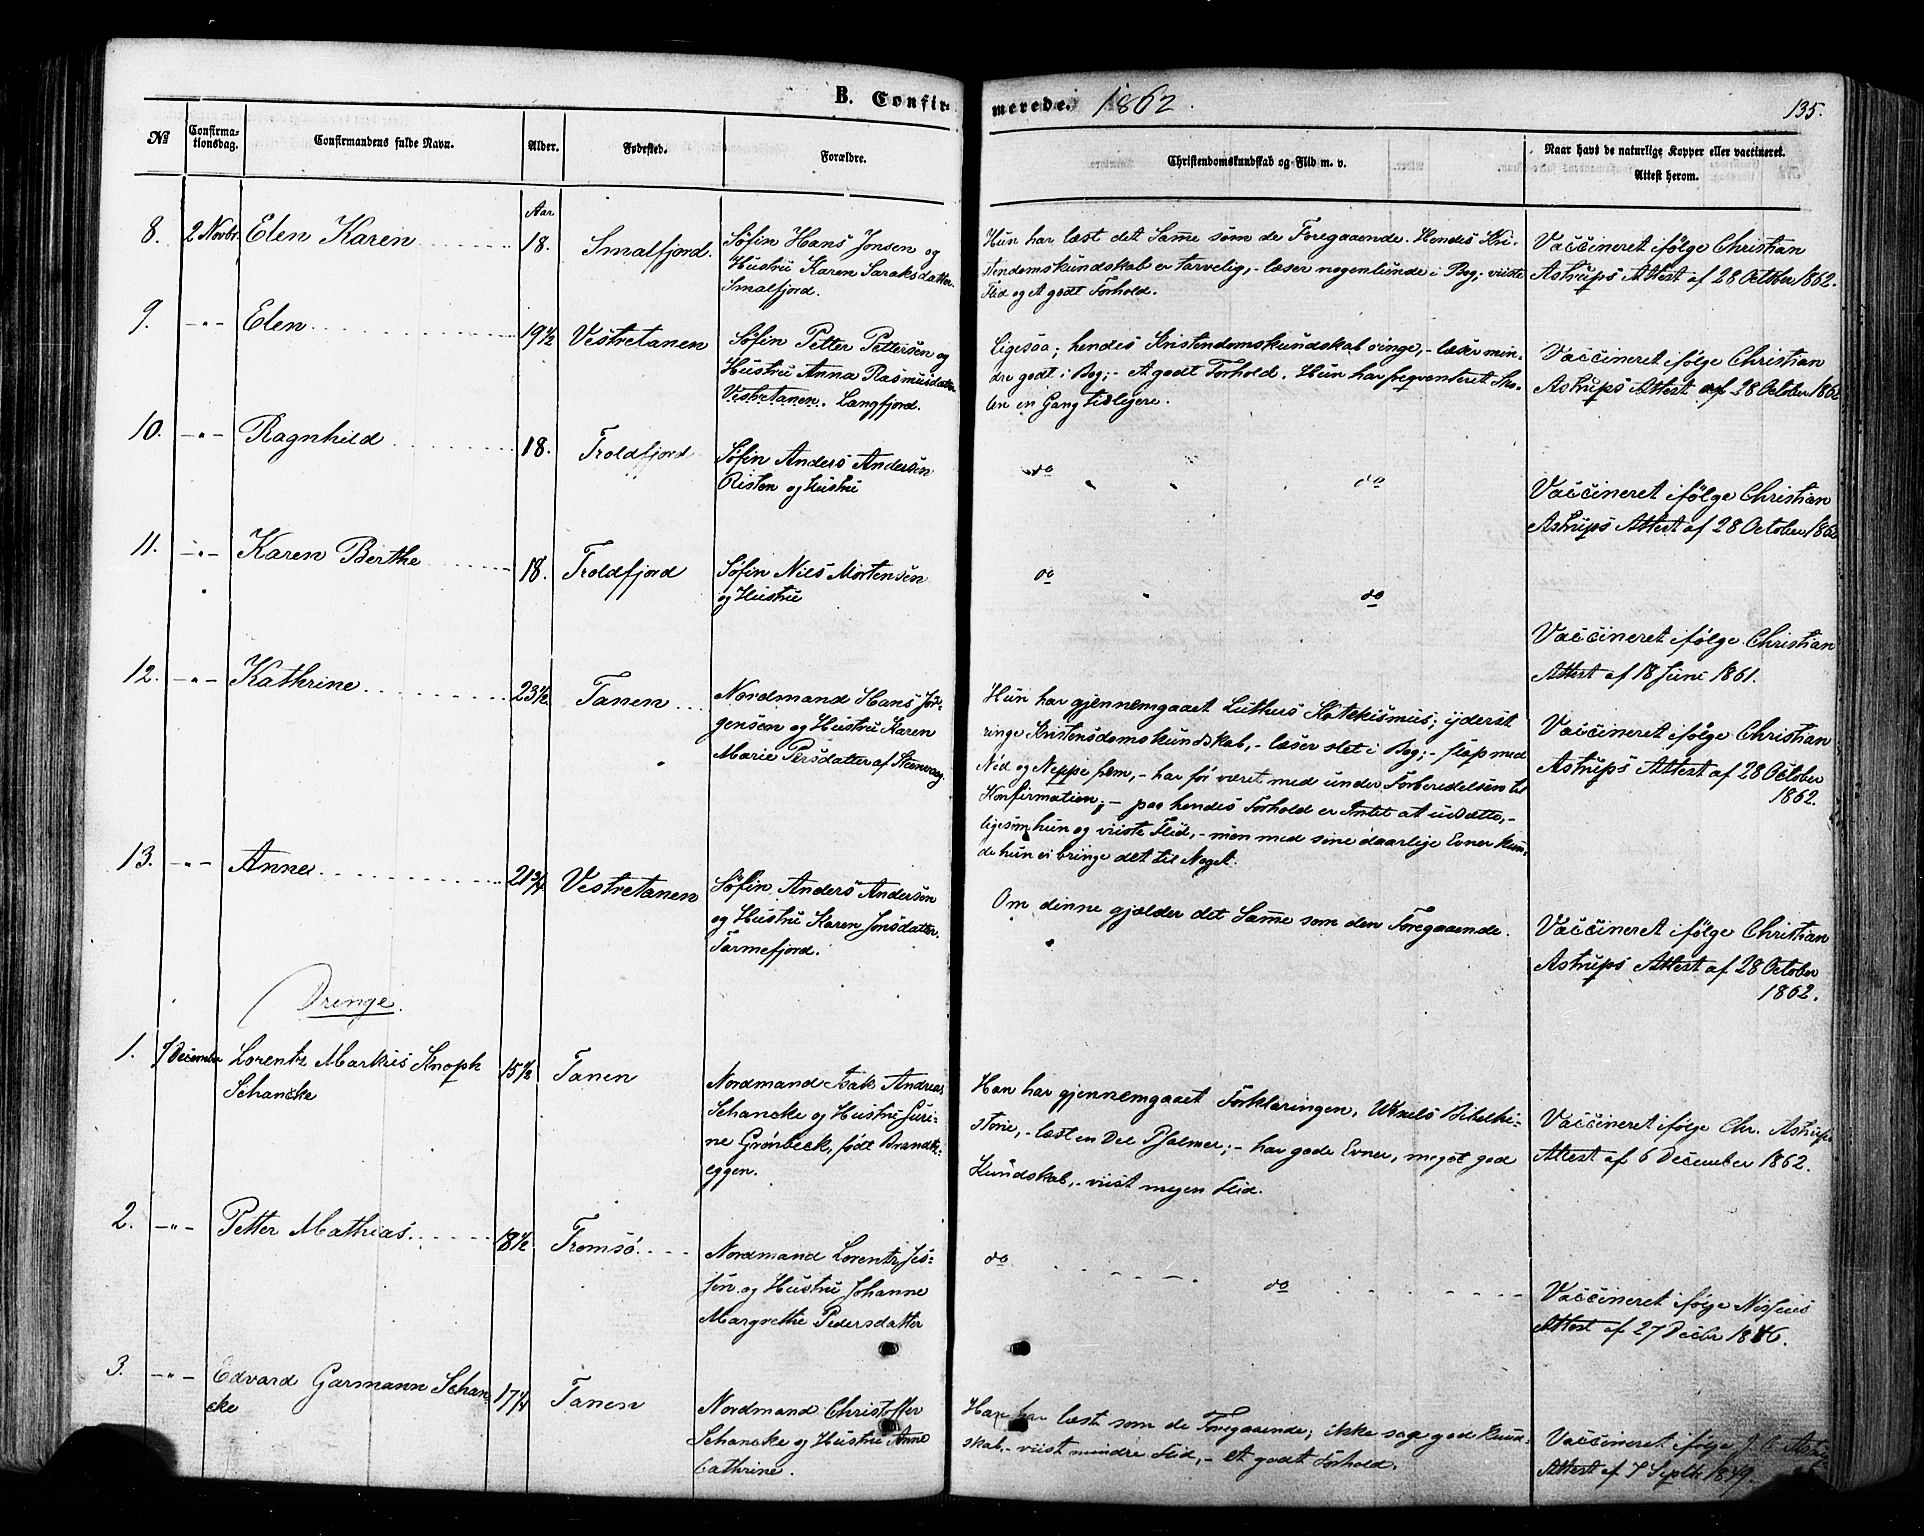 B. Confir-
merede. 1862
135.
№
Confirma-
tionsdag.
Confirmandens fulde Navn.
Alder.
Fødested.
Forældre.
Christendomskundskab og Flid m. v.
Naar havs de naturlige Kopper eller vaccineret.
Attest herom.
8. 2 Novbr. Elen Karen
Aar
18. Smalfjord.
Søfin Hans Jonsen og
Hustru Karen Saraksdatter
Smalfjord.
Hun har læst det Samme som de Foregaaende. Hendes Kri-
stendomskundskab er tarvelig, - læser nogenlunde i Bog; viiste
Flid og et godt Forhold.
Vaccineret ifølge Christian
Astrups Attest af 28 October 1862.
9. -"- Elen
19½ Vestretanen
Søfin Petter Pettersen og
Hustru Anna Rasmusdatter
Vestretanen. Langfjord.
Ligesaa; hendes Kristendomskundskab ringe, - læser min-
dre godt i Bog; - Et godt Forhold. Hun har freqventeret Sko-
len en Gang tidligere.
Vaccineret ifølge Christian
Astrups Attest af 28 October 1862
10. -"- Ragnhild
18. Troldfjord
Søfin Anders Andersen
Risten og Hustru
do " " do
Vaccineret ifølge Christian
Astrups Attest af 28 October 1862
11. -"- Karen Berthe
18. Troldfjord
Søfin Nils Mortensen
og Hustru
do " do
Vaccineret ifølge Christian
Attest af 18 Juni 1861.
12. -"- Kathrine
23½ Tanen
Nordmand Hans Jør-
gensen og Hustru Karen
Marie Persdatter af Steenvaag
Hun har gjennemgaaet Luthers Katekismus; yderst
ringe Kristensdomskundskab, - læser slet i Bog; - slap med
Nød og Neppe frem, - har før været med under Forberedelsen til
Konfirmation; - paa hendes Forhold er Intet at udsætte, -
ligesom hun og viiste Flid, - men med sine daarlige Evner kun-
de hun ei bringe det til Noget.
Vaccineret ifølge Christian
Astrups Attest af 28 October
1862.
13. -"- Anne
21¾ Vestretanen
Søfin Anders Andersen
og Hustru Karen Jonsdatter.
Tarmefjord.
Om denne gjælder det Samme som den Foregaaende.
Vaccineret ifølge Christian
Astrups Attest af 28 October
1862.
Drenge.
1. 7 December Lorentz Markus Knoph
Schancke
15½ Tanen
Nordmand Isak Andreas
Schancke og Hustru Juri-
ne Grønbeck, født Brandt-
eggen.
Han har gjennemgaaet Forklaringen, Wexels Bibelhi-
storie, - læst en Del Psalmer; - har gode Evner, meget god
Kundskab, - viist megen Flid.
Vaccineret ifølge Chr. Astrups
Attest af 6 December 1862.
2. -"- Petter Mathias
18½ Tromsø
Nordmand Lorentz Jes-
sen og Hustru Johanne
Margrethe Pedersdatter
do do
Vaccineret ifølge Nissens
Attest af 27 Decbr 1846.
3. -"- Edvard Garmann Schan-
cke
17¼ Tanen
Nordmand Christoffer
Schancke og Hustru Anne
Cathrine.
Han har læst som de Foregaaende; ikke saa god Kund-
skab, - viist mindre Flid, - et godt Forhold.
Vaccineret ifølge J. C. Astrups
Attest af 7 Septbr 1849.